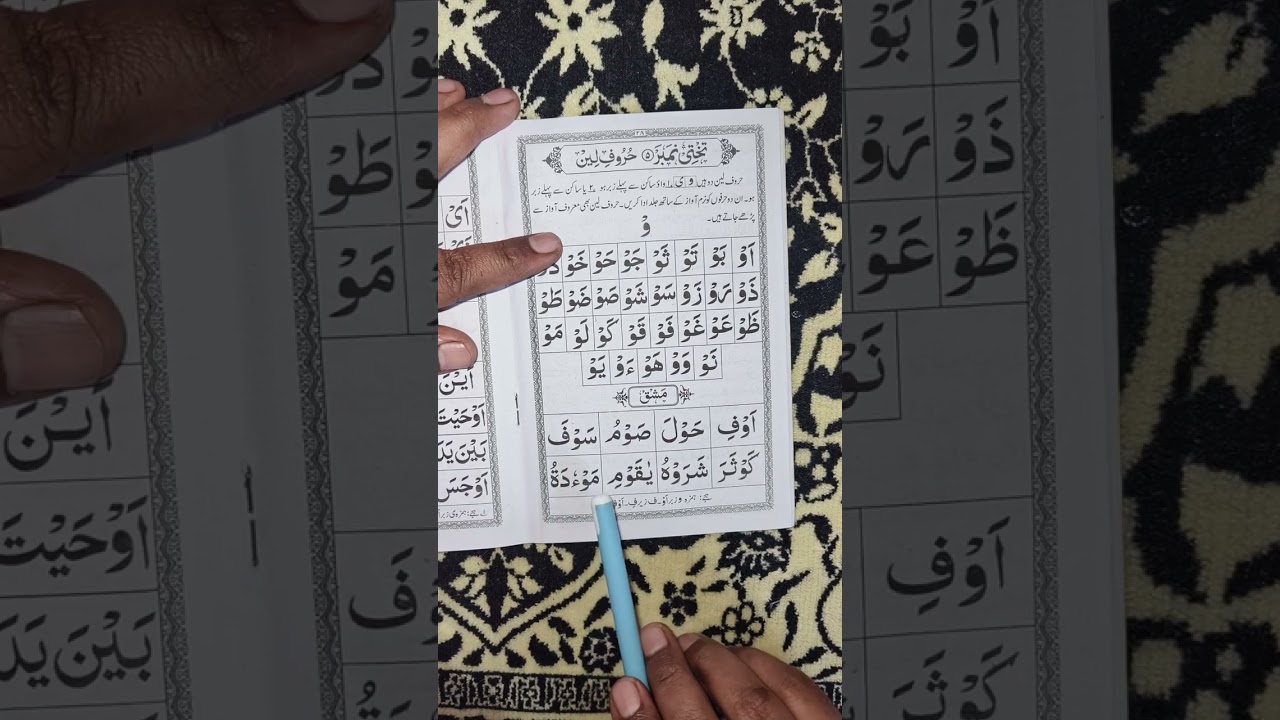 ۲۸
تختی نمبر ۵ حُرُوفِ لِین
حروف لین دو ہیں و ی ۱۔ واؤ ساکن سے پہلے زبر ہو ۲۔ یا ساکن سے پہلے زبر
ہو۔ ان دو حرفوں کو نرم آواز کے ساتھ جلد ادا کریں۔ حروف لین بھی معروف آواز سے
پڑھے جاتے ہیں۔
وْ
اَوْ بَوْ تَوْ ثَوْ جَوْ حَوْ خَوْ دَوْ
ذَوْ رَوْ زَوْ سَوْ شَوْ صَوْ ضَوْ طَوْ
ظَوْ عَوْ غَوْ فَوْ قَوْ كَوْ لَوْ مَوْ
نَوْ وَوْ هَوْ ءَوْ يَوْ
مَشق
اَوْفِ حَوْلَ صَوْمُ سَوْفَ
كَوْثَرَ شَرَوْهُ يٰقَوْمِ مَوْءٗدَةُ
ہجے: ہمزہ و زبر اَوْ۔ ف زیر فِ۔ اَوْفِ
اَیْ
اَيْنَ
اَوْحَيْتَ
بَيْنَ يَدَ
اَوْجَسَ